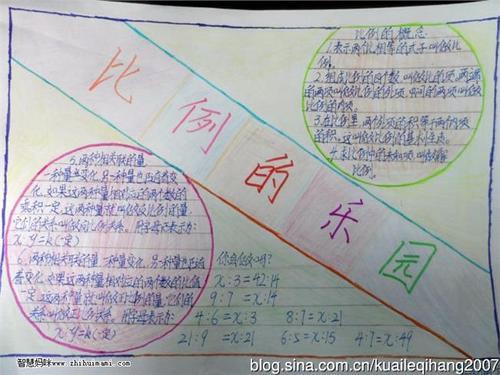 比例的乐园
比例的概念
1.表示两个比相等的式子叫做比
例。
2.组成比例的四个数,叫做比例的项。两端
的两项叫做比例的外项,中间的两项叫做
比例的内项。
3.在比例里,两个外项的积等于两个内项
的积。这叫做比例的基本性质。
4.求比例中的未知项,叫做解
比例。
5.两种相关联的量
一种量变化,另一种量也随着变
化,如果这两种量相对应的两个数的
乘积一定,这两种量就叫做反比例的量,
它们的关系叫做反比例关系。用字母表示为:
x y=k(一定)
6.两种相关联的量,一种量变化,另一种量也随
着变化,如果这两种量相对应的两个数的比值
一定,这两种量就叫做正比例的量,它们的
关系叫做正比例关系。用字母表示:
x y=k(一定)
你会做吗?
x:3=42:14
9:7=x:14
4:6=x:3 8:7=x:21
21:9=x:21 6:5=x:15 4:7=x:49
智慧妈咪 www.zhihuimami.com
blog.sina.com.cn/kuaileqihang2007